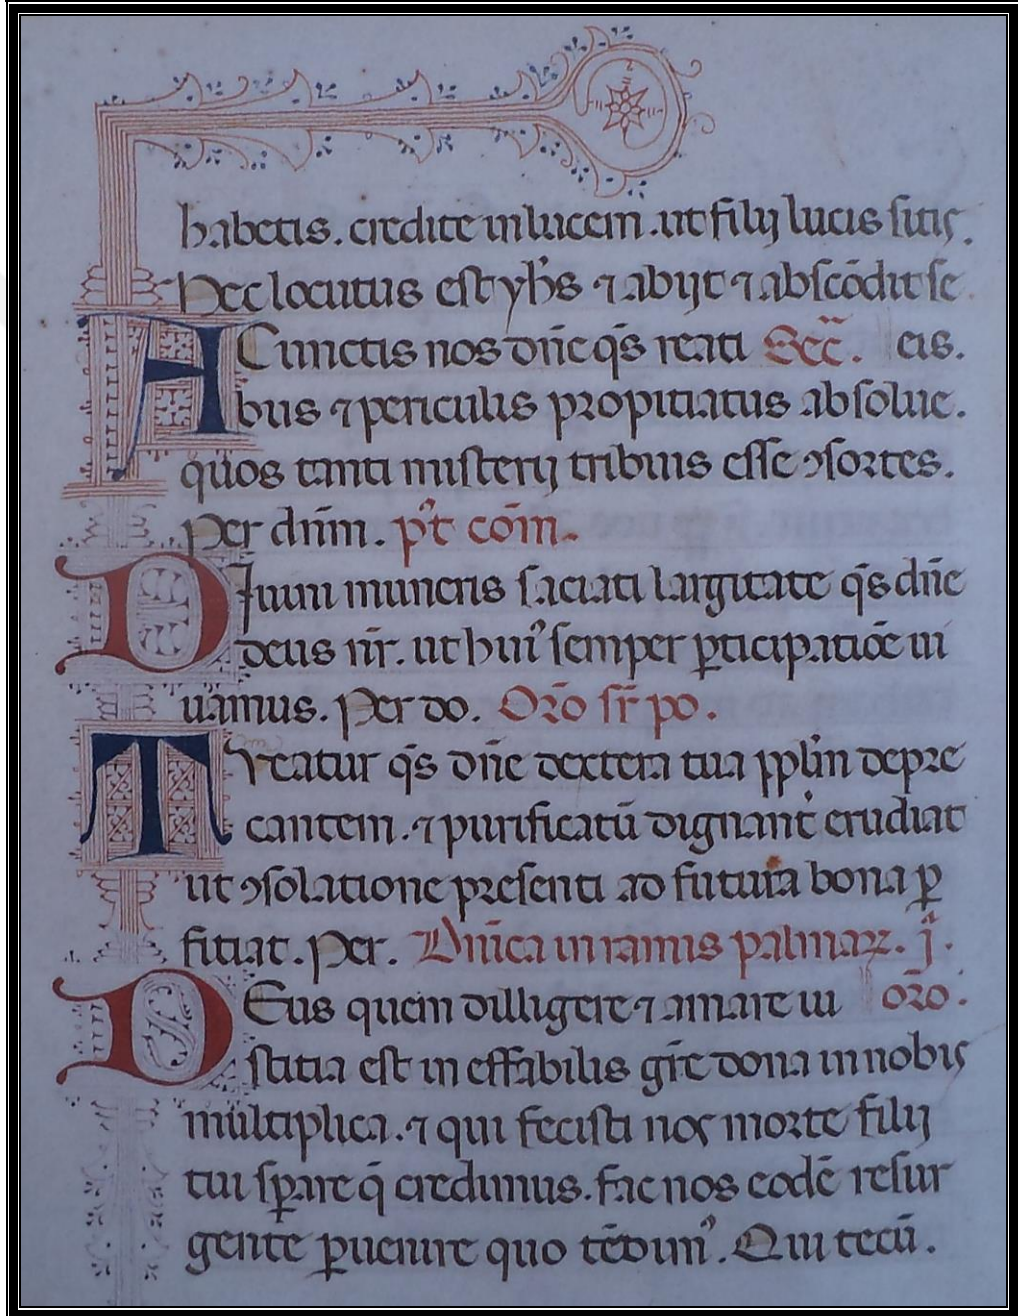 habetis. credite in lucem. ut filij lucis sitis.
Hec locutus est yh̄s ⁊ abijt ⁊ abscōdit se
A Cunctis nos dn̄e q̄s reati Sec̄. eis.
bus ⁊ periculis propitiatus absolue.
quos tanti misterij tribuis esse ꝯsortes.
Per dn̄m. p't cōm.
DIuini muneris saciati largitate q̄s dn̄e
deus nr̄. ut hui' semper ꝑticipatiōe ui
uamus. Per do. Orō sr̄ po.
TUeatur q̄s dn̄e dextera tua pplm̄ depre
cantem. ⁊ purificatū dignant' erudiat
ut ꝯsolatione presenti ad futura bona ꝑ
fitiat. Per. Dn̄ica in ramis palmaꝝ. j̄.
DEus quem dilligere ⁊ amare iu orō.
stitia est in effabilis gr̄e dona in nobis
multiplica. ⁊ qui fecisti nos morte filij
tui sꝑare q̄ credimus. fac nos eodē resur
gente ꝑuenire quo tēdim'. Qui tecū.